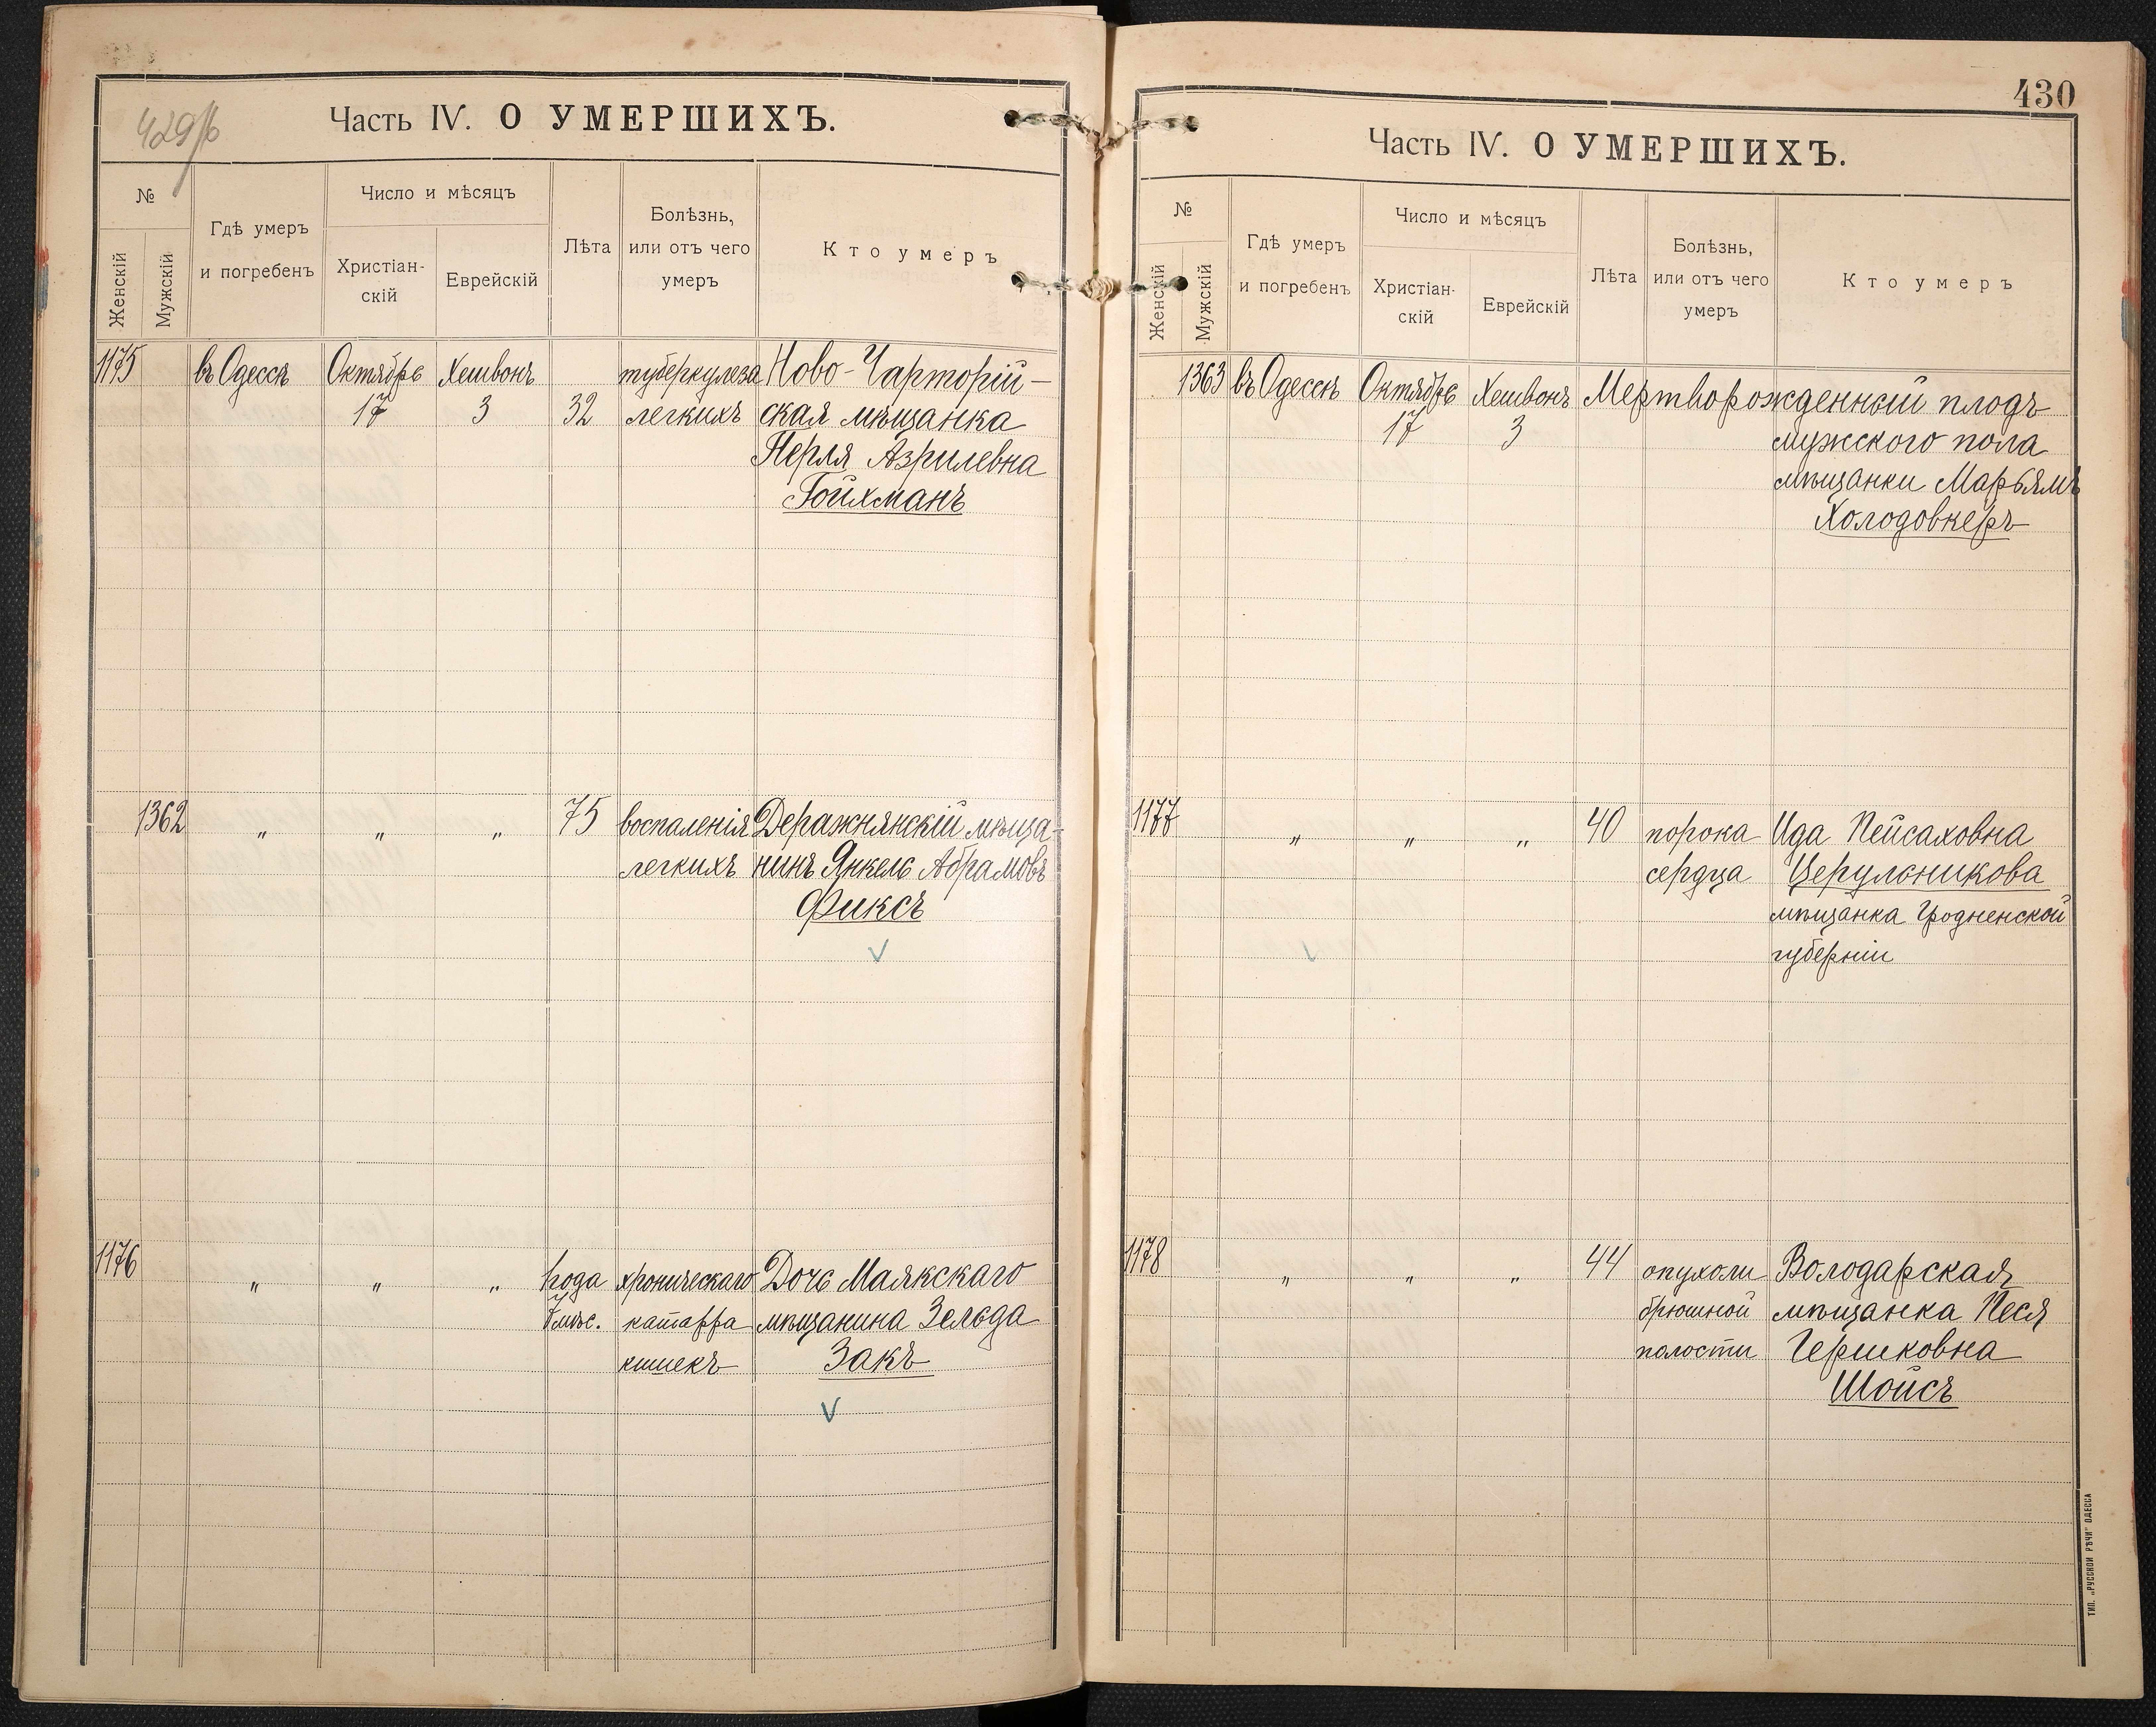 429/б
Часть IV. О УМЕРШИХЪ.
№
Женскій
Мужскій
Гдѣ умеръ
и погребенъ
Число и мѣсяцъ
Христіан-
скій
Еврейскій
Лѣта
Болѣзнь,
или отъ чего
умеръ
Кто умеръ
1175 въ Одессѣ Октябрь Хешвонъ туберкулеза Ново-Чарторій-
17 3 32 легкихъ ская мѣщанка
Перля Азрилевна
Гойхманъ
1362 „ „ „ 75 воспаленія Деражнянскій мѣща-
легкихъ нинъ Янкель Абрамовъ
Фиксъ
1176 „ „ „ года хроническаго Дочь Маякскаго
7 мѣс. катарра мѣщанина Зельда
кишекъ Закъ
430
Часть IV. О УМЕРШИХЪ.
№
Женскій
Мужскій
Гдѣ умеръ
и погребенъ
Число и мѣсяцъ
Христіан-
скій
Еврейскій
Лѣта
Болѣзнь,
или отъ чего
умеръ
Кто умеръ
1363 въ Одессѣ Октябрь Хешвонъ Мертворожденный плодъ
17 3 мужского пола
мѣщанки Марьямъ
Холодовкеръ
1177 „ „ „ 40 порока Ида Пейсаховна
сердца Церульникова
мѣщанка Гродненской
губерніи
1178 „ „ „ 44 опухоли Володарская
брюшной мѣщанка Песя
полости Гершковна
Шойсъ
ТИП. „РУССКОЙ РѢЧИ“ ОДЕССА